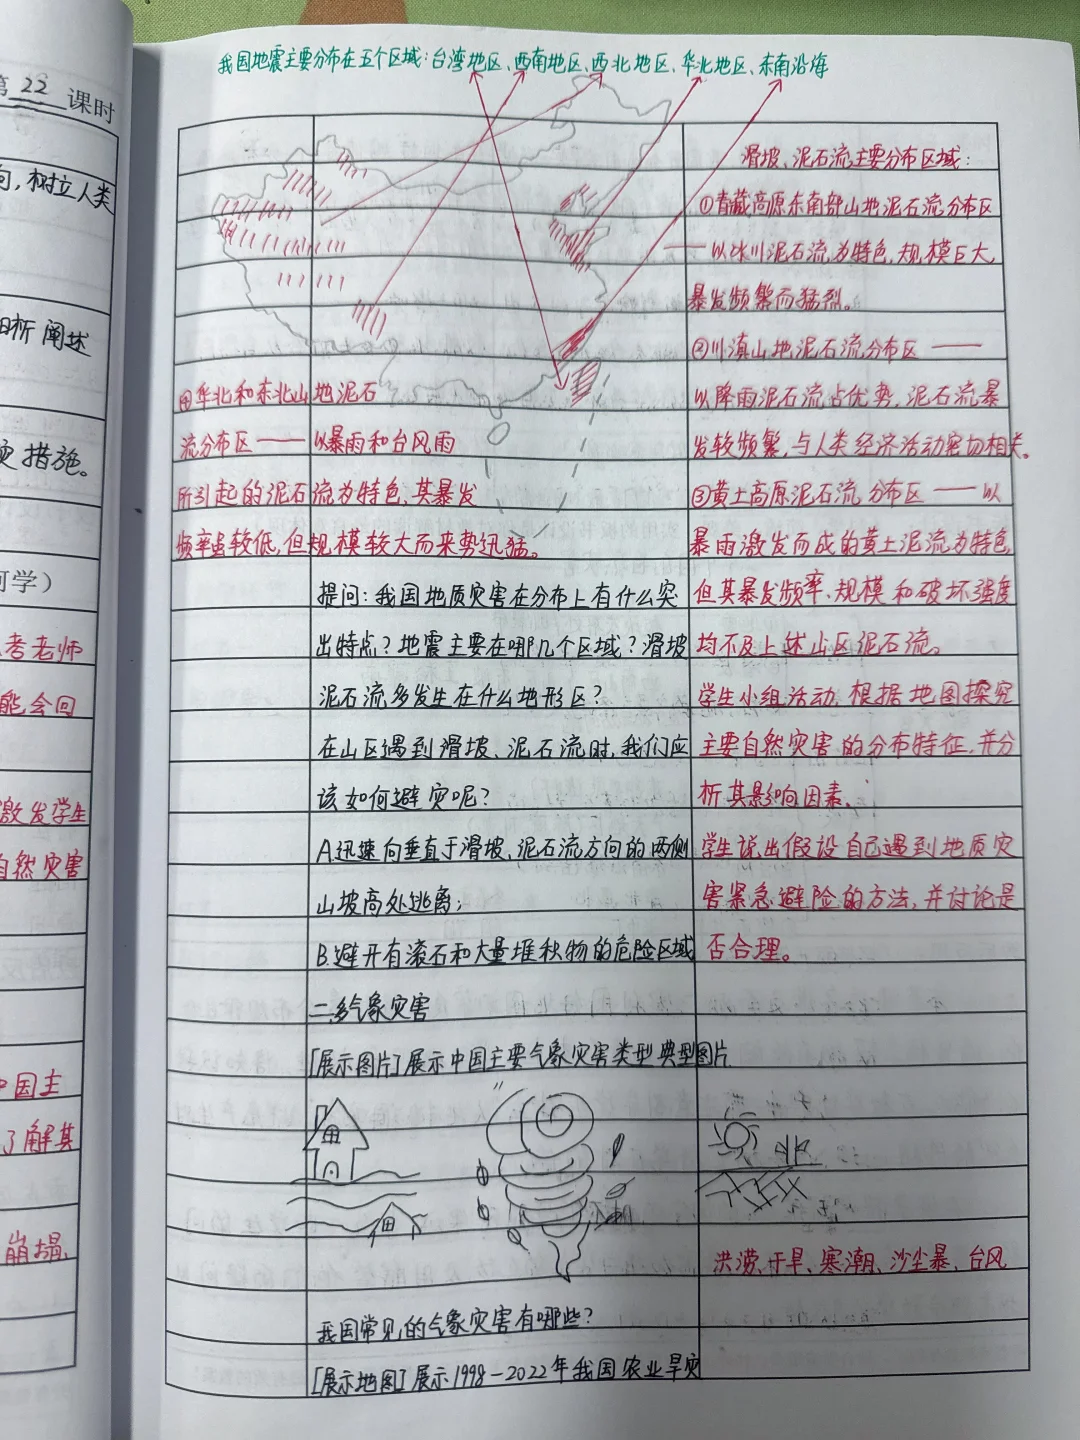 第22课时
向,树立人类
析阐述
灾措施。
可学)
考老师
能会回
激发学生
自然灾害
中国主
了解其
崩塌、
我国地震主要分布在五个区域:台湾地区、西南地区、西北地区、华北地区、东南沿海
④华北和东北山地泥石
流分布区——以暴雨和台风雨
所引起的泥石流为特色,其暴发
频率虽较低,但规模较大而来势迅猛。
提问:我国地质灾害在分布上有什么突
出特点?地震主要在哪几个区域?滑坡
泥石流多发生在什么地形区?
在山区遇到滑坡、泥石流时,我们应
该如何避灾呢?
A.迅速向垂直于滑坡、泥石流方向的两侧
山坡高处逃离;
B.避开有滚石和大量堆积物的危险区域
二、多气象灾害
[展示图片]展示中国主要气象灾害类型典型图片.
我国常见的气象灾害有哪些?
[展示地图]展示1998-2022年我国农业旱灾
滑坡、泥石流主要分布区域:
①青藏高原东南部山地泥石流分布区
——以冰川泥石流为特色,规模巨大,
暴发频繁而猛烈。
②川滇山地泥石流分布区——
以降雨泥石流占优势,泥石流暴
发较频繁,与人类经济活动密切相关。
③黄土高原泥石流分布区——以
暴雨激发而成的黄土泥流为特色
但其暴发频率、规模和破坏强度
均不及上述山区泥石流。
学生小组活动,根据地图探究
主要自然灾害的分布特征,并分
析其影响因素。
学生说出假设自己遇到地质灾
害紧急避险的方法,并讨论是
否合理。
洪涝、干旱、寒潮、沙尘暴、台风